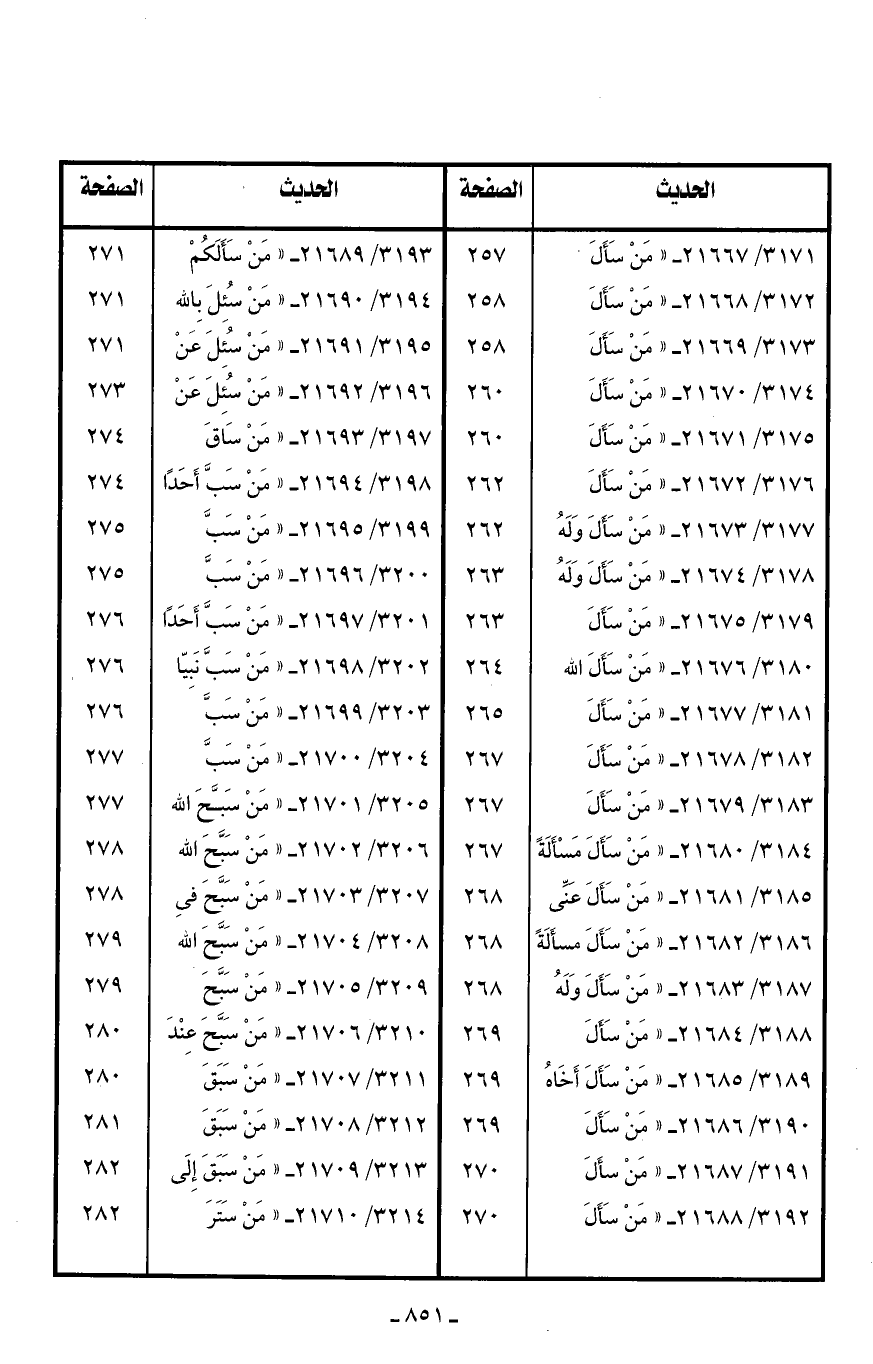 الحديث الصفحة الحديث الصفحة
٣١٧١/ ٢١٦٦٧ـ « مَنْ سَأَلَ ٢٥٧ ٣١٩٣/ ٢١٦٨٩ـ « مَنْ سَأَلَكُمْ ٢٧١
٣١٧٢/ ٢١٦٦٨ـ « مَنْ سَأَلَ ٢٥٨ ٣١٩٤/ ٢١٦٩٠ـ « مَنْ سُئِلَ بِالله ٢٧١
٣١٧٣/ ٢١٦٦٩ـ « مَنْ سَأَلَ ٢٥٨ ٣١٩٥/ ٢١٦٩١ـ « مَنْ سُئِلَ عَنْ ٢٧١
٣١٧٤/ ٢١٦٧٠ـ « مَنْ سَأَلَ ٢٦٠ ٣١٩٦/ ٢١٦٩٢ـ « مَنْ سُئِلَ عَنْ ٢٧٣
٣١٧٥/ ٢١٦٧١ـ « مَنْ سَأَلَ ٢٦٠ ٣١٩٧/ ٢١٦٩٣ـ « مَنْ سَاقَ ٢٧٤
٣١٧٦/ ٢١٦٧٢ـ « مَنْ سَأَلَ ٢٦٢ ٣١٩٨/ ٢١٦٩٤ـ « مَنْ سَبَّ أَحَدًا ٢٧٤
٣١٧٧/ ٢١٦٧٣ـ « مَنْ سَأَلَ وَلَهُ ٢٦٢ ٣١٩٩/ ٢١٦٩٥ـ « مَنْ سَبَّ ٢٧٥
٣١٧٨/ ٢١٦٧٤ـ « مَنْ سَأَلَ وَلَهُ ٢٦٣ ٣٢٠٠/ ٢١٦٩٦ـ « مَنْ سَبَّ ٢٧٥
٣١٧٩/ ٢١٦٧٥ـ « مَنْ سَأَلَ ٢٦٣ ٣٢٠١/ ٢١٦٩٧ـ « مَنْ سَبَّ أَحَدًا ٢٧٦
٣١٨٠/ ٢١٦٧٦ـ « مَنْ سَأَلَ الله ٢٦٤ ٣٢٠٢/ ٢١٦٩٨ـ « مَنْ سَبَّ نَبِيّا ٢٧٦
٣١٨١/ ٢١٦٧٧ـ « مَنْ سَأَلَ ٢٦٥ ٣٢٠٣/ ٢١٦٩٩ـ « مَنْ سَبَّ ٢٧٦
٣١٨٢/ ٢١٦٧٨ـ « مَنْ سَأَلَ ٢٦٧ ٣٢٠٤/ ٢١٧٠٠ـ « مَنْ سَبَّ ٢٧٧
٣١٨٣/ ٢١٦٧٩ـ « مَنْ سَأَلَ ٢٦٧ ٣٢٠٥/ ٢١٧٠١ـ « مَنْ سَبَّحَ الله ٢٧٧
٣١٨٤/ ٢١٦٨٠ـ « مَنْ سَأَلَ مَسْأَلَةً ٢٦٧ ٣٢٠٦/ ٢١٧٠٢ـ « مَنْ سَبَّحَ الله ٢٧٨
٣١٨٥/ ٢١٦٨١ـ « مَنْ سَأَلَ عَنِّى ٢٦٨ ٣٢٠٧/ ٢١٧٠٣ـ « مَنْ سَبَّحَ فِى ٢٧٨
٣١٨٦/ ٢١٦٨٢ـ « مَنْ سَأَلَ مسأَلَةً ٢٦٨ ٣٢٠٨/ ٢١٧٠٤ـ « مَنْ سَبَّحَ الله ٢٧٩
٣١٨٧/ ٢١٦٨٣ـ « مَنْ سَأَلَ وَلَهُ ٢٦٨ ٣٢٠٩/ ٢١٧٠٥ـ « مَنْ سَبَّحَ ٢٧٩
٣١٨٨/ ٢١٦٨٤ـ « مَنْ سَأَلَ ٢٦٩ ٣٢١٠/ ٢١٧٠٦ـ « مَنْ سَبَّحَ عِنْدَ ٢٨٠
٣١٨٩/ ٢١٦٨٥ـ « مَنْ سَأَلَ أَخَاهُ ٢٦٩ ٣٢١١/ ٢١٧٠٧ـ « مَنْ سَبَقَ ٢٨٠
٣١٩٠/ ٢١٦٨٦ـ « مَنْ سَأَلَ ٢٦٩ ٣٢١٢/ ٢١٧٠٨ـ « مَنْ سَبَقَ ٢٨١
٣١٩١/ ٢١٦٨٧ـ « مَنْ سَأَلَ ٢٧٠ ٣٢١٣/ ٢١٧٠٩ـ « مَنْ سَبَقَ إِلَى ٢٨٢
٣١٩٢/ ٢١٦٨٨ـ « مَنْ سَأَلَ ٢٧٠ ٣٢١٤/ ٢١٧١٠ـ « مَنْ سَتَرَ ٢٨٢
ـ ٨٥١ ـ